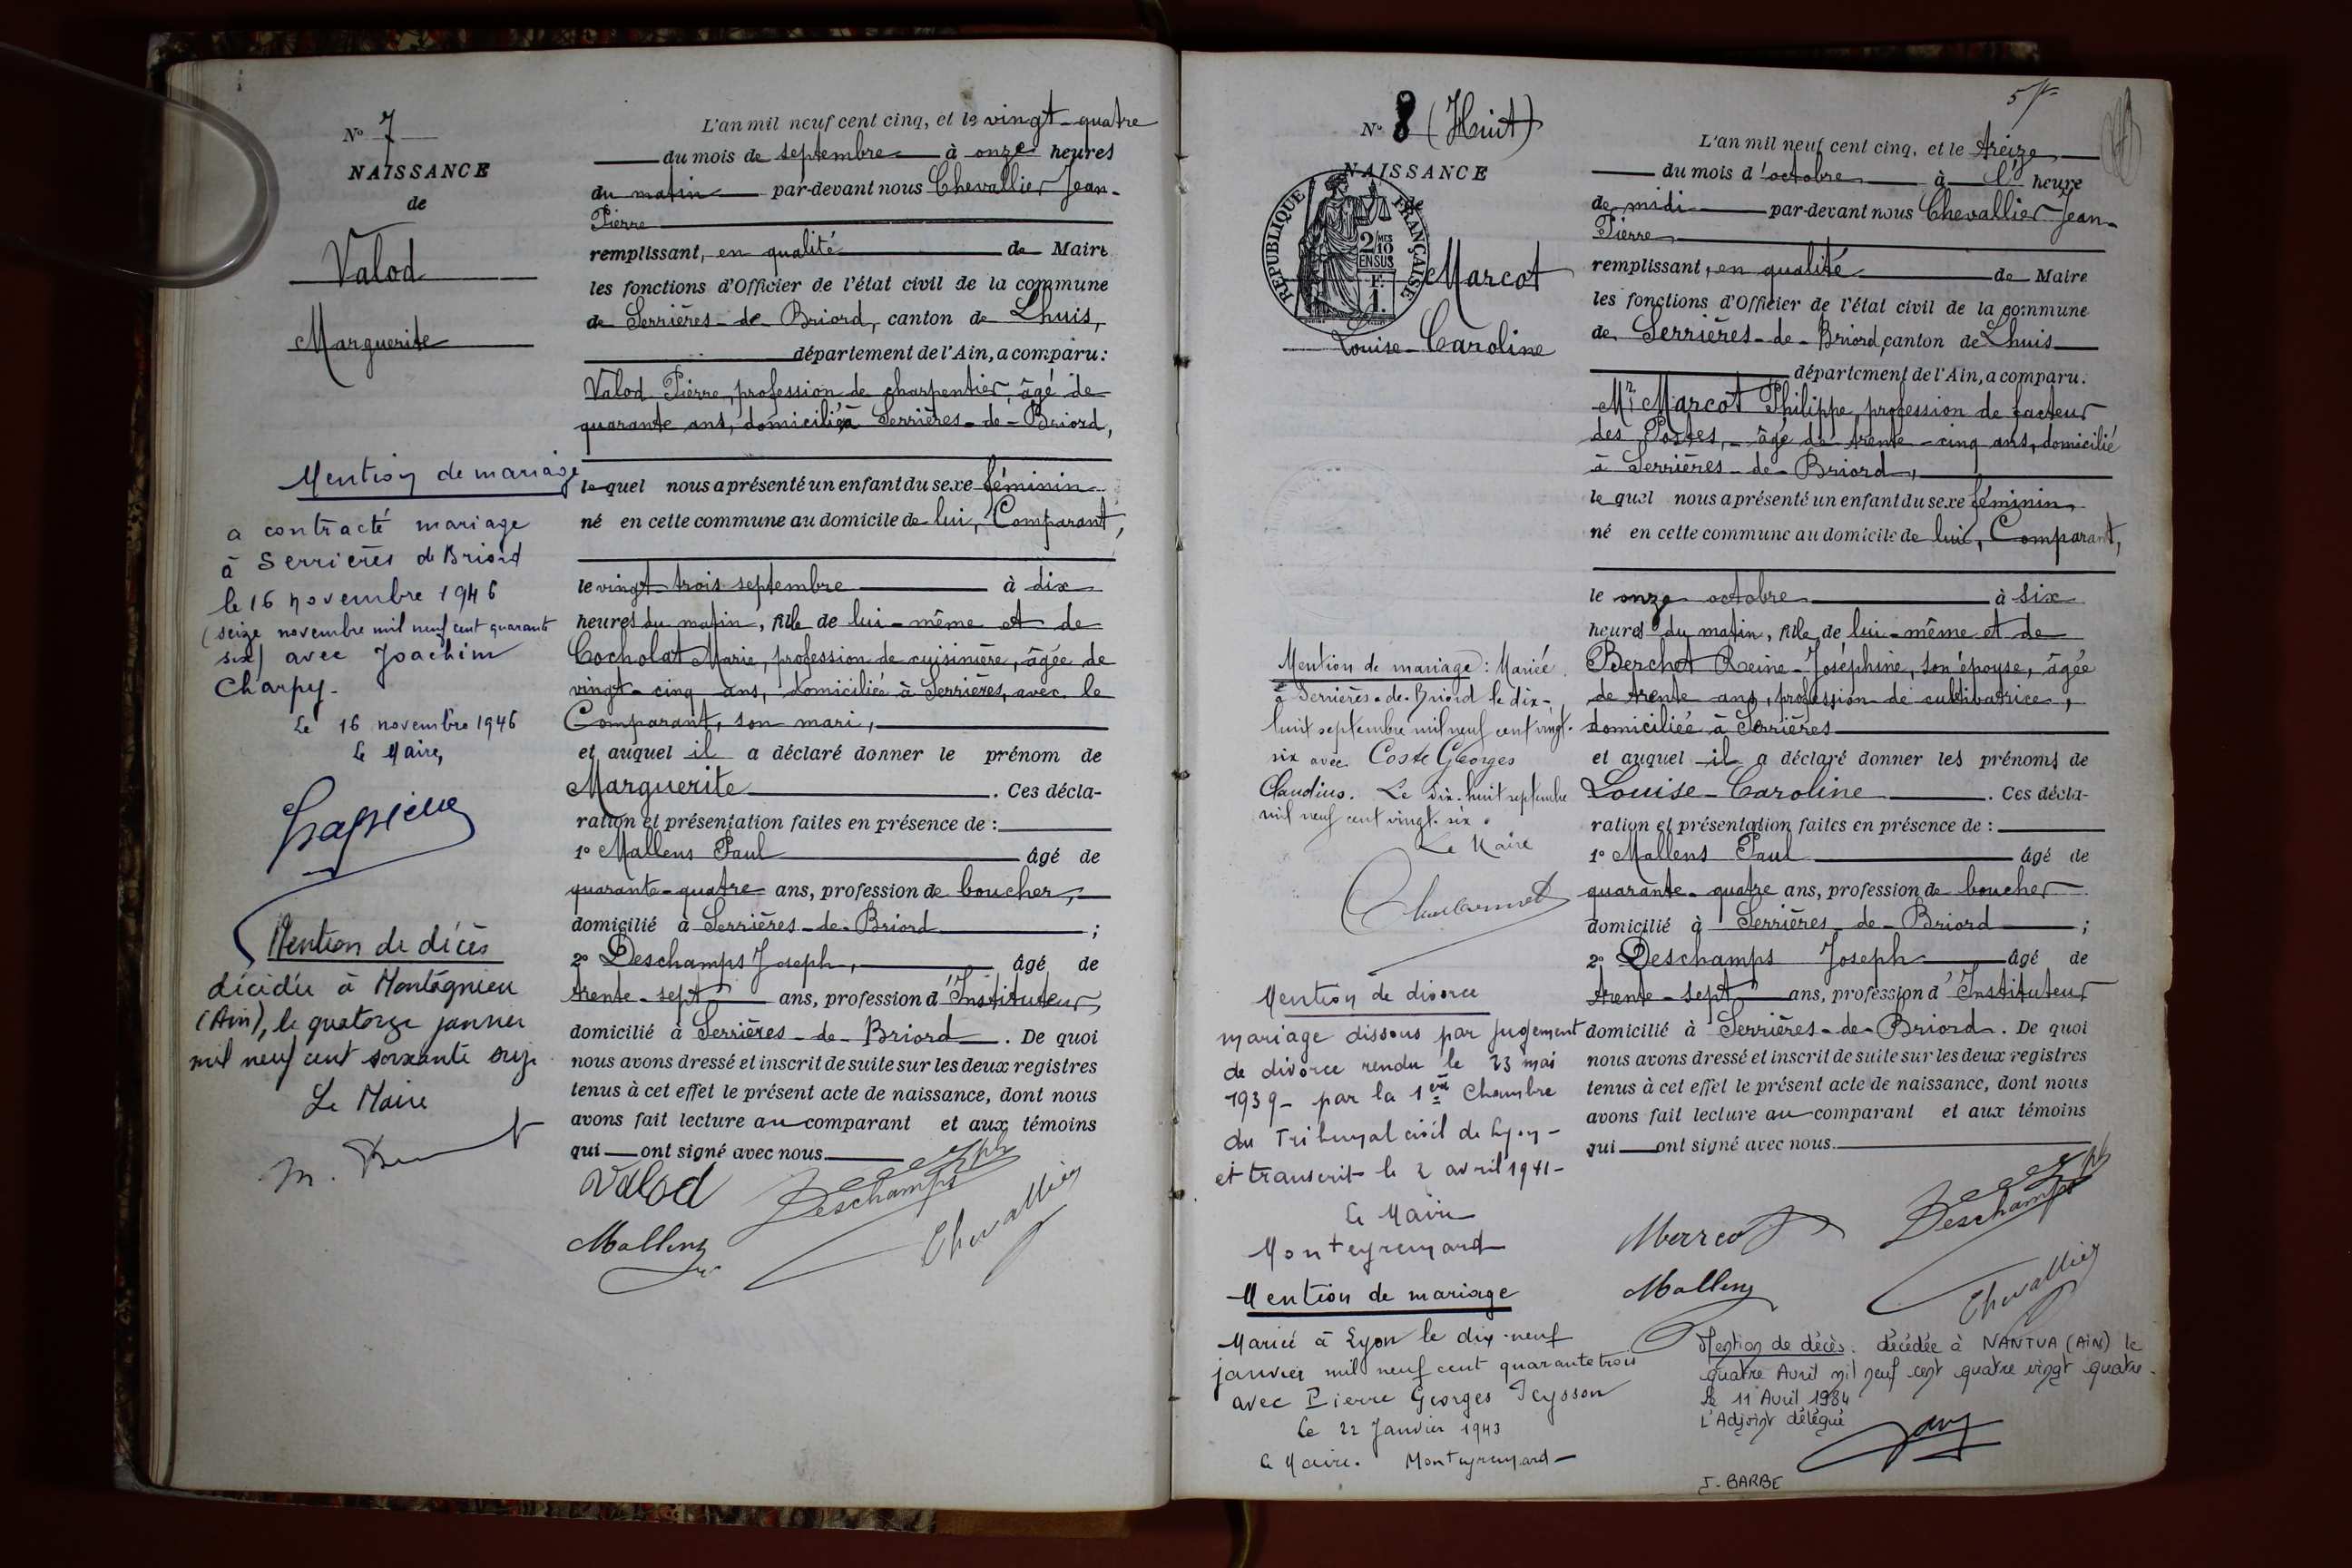 N° 7
NAISSANCE
de
Valod
Marguerite
Mention de mariage
a contracté mariage
à Serrières de Briord
le 16 novembre 1946
(seize novembre mil neuf cent quarante
six) avec Joachim
Charpy.
Le 16 novembre 1946
Le Maire,
Mention de décès
décédée à Montagnieu
(Ain), le quatorze janvier
mil neuf cent soixante
Le Maire
L'an mil neuf cent cinq, et le vingt-quatre
du mois de septembre à onze heures
du matin par-devant nous Chevallier Jean-
Pierre
remplissant, en qualité de Maire
les fonctions d'Officier de l'état civil de la commune
de Serrières-de-Briord, canton de Lhuis,
département de l'Ain, a comparu:
Valod Pierre, profession de charpentier, âgé de
quarante ans, domicilié à Serrières-de-Briord,
lequel nous a présenté un enfant du sexe féminin
né en cette commune au domicile de lui, Comparant,
le vingt-trois septembre à dix
heures du matin, fille de lui-même et de
Cocholat Marie, profession de cuisinière, âgée de
vingt-cinq ans, domiciliée à Serrières, avec le
Comparant, son mari,
et auquel il a déclaré donner le prénom de
Marguerite. Ces décla-
ration et présentation faites en présence de :
1° Mallens Paul âgé de
quarante-quatre ans, profession de boucher,
domicilié à Serrières-de-Briord ;
2° Deschamps Joseph, âgé de
trente-sept ans, profession d'Instituteur,
domicilié à Serrières-de-Briord. De quoi
nous avons dressé et inscrit de suite sur les deux registres
tenus à cet effet le présent acte de naissance, dont nous
avons fait lecture au comparant et aux témoins
qui ont signé avec nous.
Valod Deschamps Joseph
Mallens Chevallier
N° 8 (Huit)
NAISSANCE
de
RÉPUBLIQUE FRANÇAISE
2/MES
10
EN SUS
F.
1.
Marcot
Louise-Caroline
Mention de mariage : Mariée
à Serrières-de-Briord le dix-
huit septembre mil neuf cent vingt-
six avec Coste Georges
Claudius. Le dix-huit septembre
mil neuf cent vingt-six.
Le Maire
Mention de divorce
mariage dissous par jugement
de divorce rendu le 23 mai
1939 - par la 1ère Chambre
du Tribunal civil de Lyon -
et transcrit le 2 avril 1941 -
Le Maire
Monteyremard
Mention de mariage
Mariée à Lyon le dix-neuf
janvier mil neuf cent quarante trois
avec Pierre Georges Teysson
Le 22 Janvier 1943
Le Maire. Monteyremard
5
L'an mil neuf cent cinq, et le treize
du mois d'octobre à l' heure
de midi par-devant nous Chevallier Jean-
Pierre
remplissant, en qualité de Maire
les fonctions d'Officier de l'état civil de la commune
de Serrières-de-Briord, canton de Lhuis
département de l'Ain, a comparu.
Mr Marcot Philippe, profession de facteur
des Postes, âgé de trente-cinq ans, domicilié
à Serrières-de-Briord,
lequel nous a présenté un enfant du sexe féminin
né en cette commune au domicile de lui, Comparant,
le onze octobre à six
heures du matin, fille de lui-même et de
Berchet Reine-Joséphine, son épouse, âgée
de trente ans, profession de cultivatrice,
domiciliée à Serrières
et auquel il a déclaré donner les prénoms de
Louise-Caroline. Ces décla-
ration et présentation faites en présence de :
1° Mallens Paul âgé de
quarante-quatre ans, profession de boucher
domicilié à Serrières-de-Briord ;
2° Deschamps Joseph âgé de
trente-sept ans, profession d'Instituteur
domicilié à Serrières-de-Briord. De quoi
nous avons dressé et inscrit de suite sur les deux registres
tenus à cet effet le présent acte de naissance, dont nous
avons fait lecture au comparant et aux témoins
qui ont signé avec nous.
Marcot Deschamps Joseph
Mallens Chevallier
Mention de décès : décédée à NANTUA (AIN) le
quatre Avril mil neuf cent quatre vingt quatre.
Le 11 Avril 1984
L'Adjoint délégué
J. BARBE